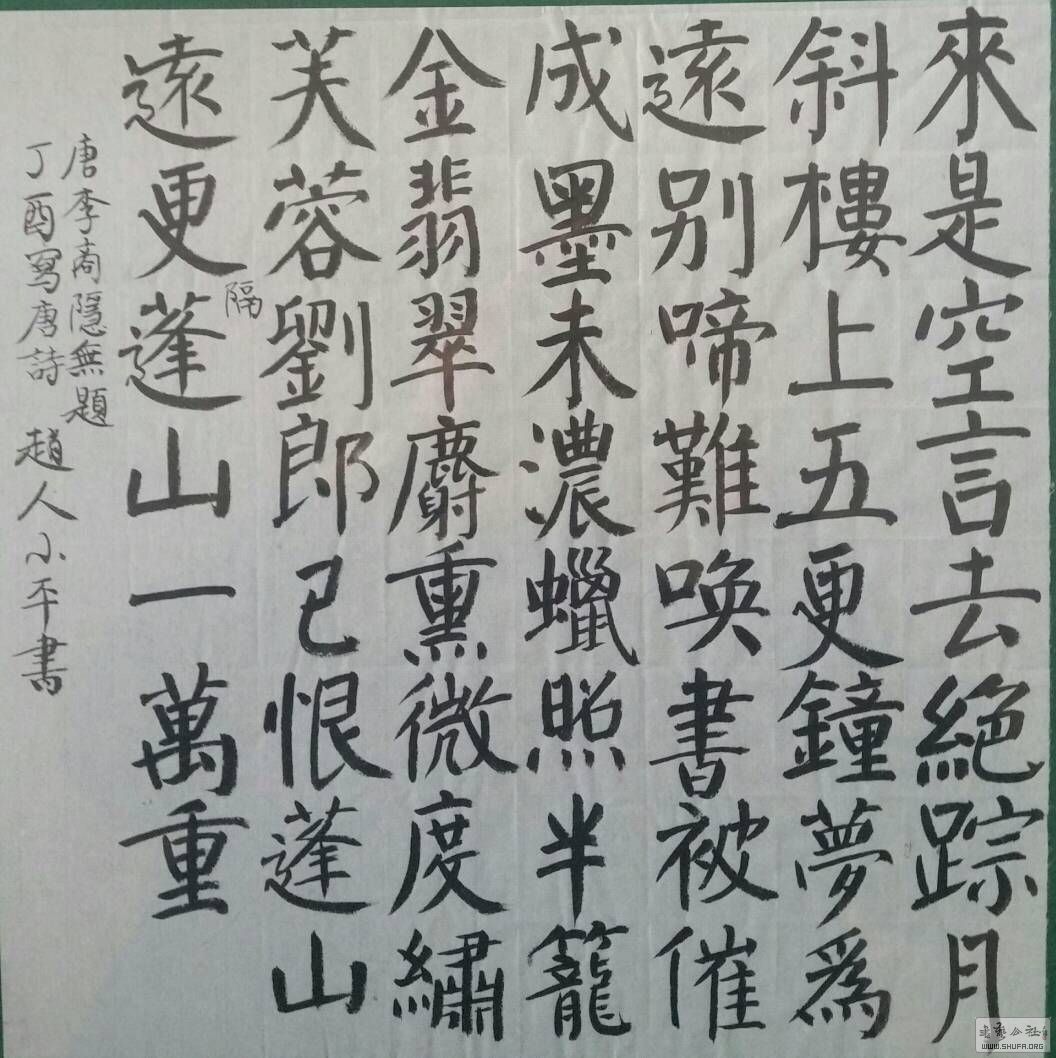 來是空言去絕踪月
斜樓上五更鐘夢爲
遠別啼難喚書被催
成墨未濃蠟照半籠
金翡翠麝熏微度繡
芙蓉劉郎已恨蓬山
隔
遠更蓬山一萬重
唐李商隱無題
丁酉寫唐詩 趙人小平書
书艺公社
WWW.SHUFA.ORG